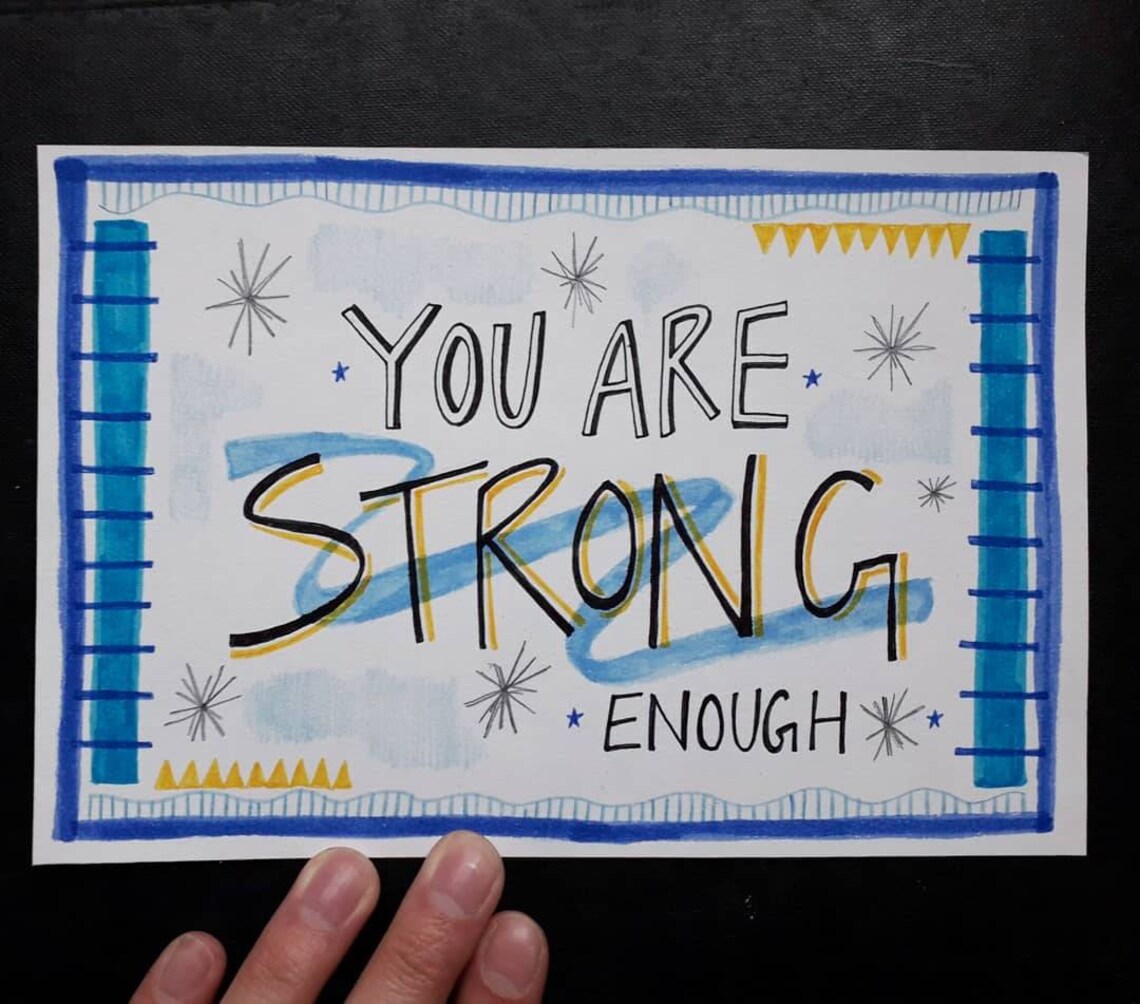 YOU ARE
STRONG
ENOUGH